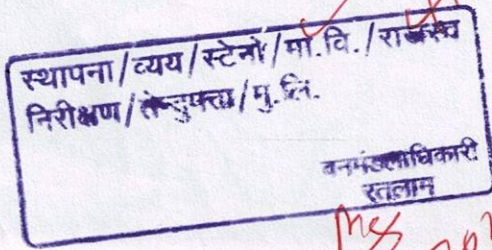 स्थापना/व्यय/स्टेनो/मा.वि./राजस्व
निरीक्षण/तेन्दुपत्ता/मु.लि.
वनमंडलाधिकारी
रतलाम